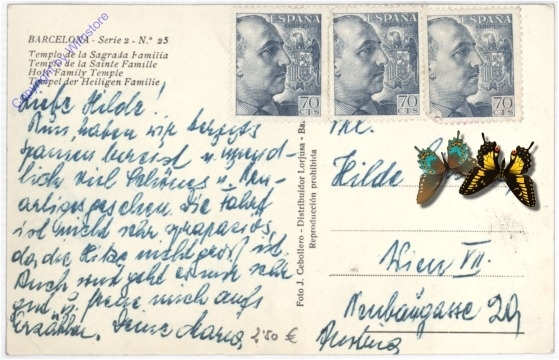 BARCELONA - Serie 2 - N.º 25
Templo de la Sagrada Familia
Temple de la Sainte Famille
Holy Family Temple
Tempel der Heiligen Familie
ESPAÑA
CORREOS
70
CTS
ESPAÑA
CORREOS
70
CTS
ESPAÑA
CORREOS
70
CTS
Liebe Hilde!
Nun haben wir bereits
Spanien bereist u. unend-
lich viel Schönes u. Neu-
artiges gesehen. Die Fahrt
ist nicht sehr strapaziös,
da die Hitze nicht groß ist.
Auch uns geht es sehr
gut u. freue mich aufs
Erzählen. Deine Maria
2'50 €
Foto J. Cebollero - Distribuidor Lorjusa - Ba
Reproducción prohibida
Hilde
Wien VII.
Neubaugasse 29
Austria